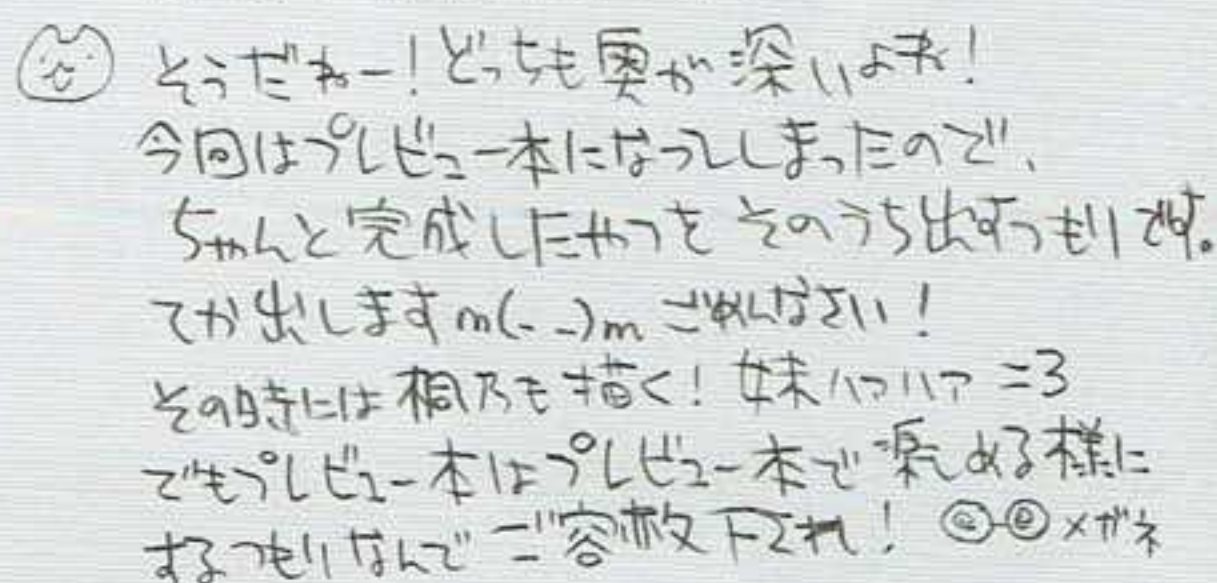 そうだねー!どっちも奥が深いよね!
今回はプレビュー本になってしまったので、
ちゃんと完成したやつをそのうち出すつもりです。
てか出します m(- -)m ごめんなさい!
その時には桐乃も描く!妹ハアハア =3
でもプレビュー本はプレビュー本で楽しめる様に
するつもりなんでご容赦下され! メガネ